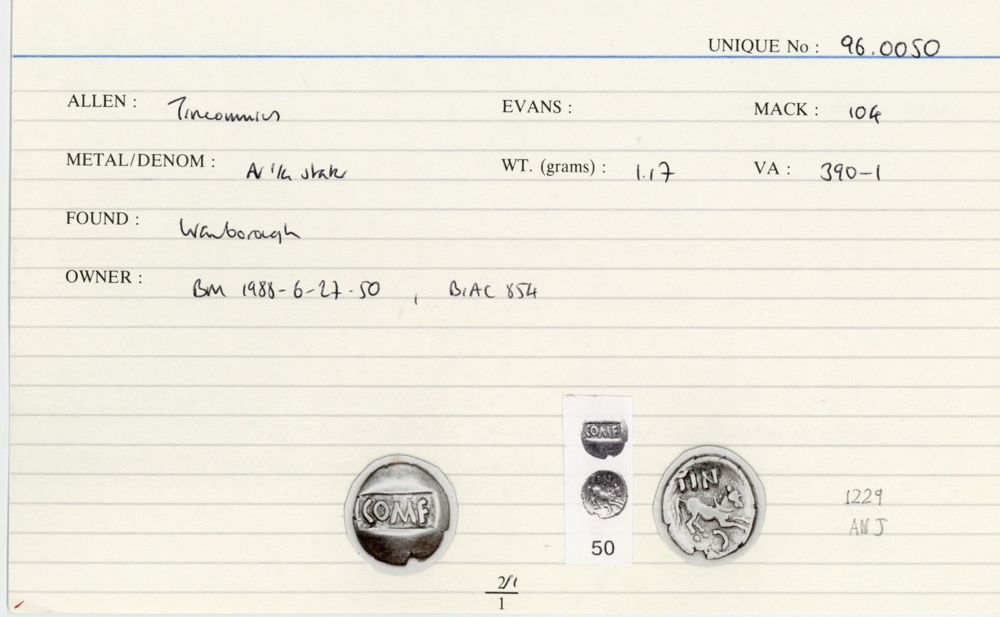 UNIQUE No : 96.0050
ALLEN : Tincommius EVANS : MACK : 104
METAL/DENOM : AV 1/4 stater WT. (grams) : 1.17 VA : 390-1
FOUND : Wanborough
OWNER : BM 1988-6-27-50 , BIAC 854
COMF
COMF
TIN
50
1229
ANJ
2/1
1